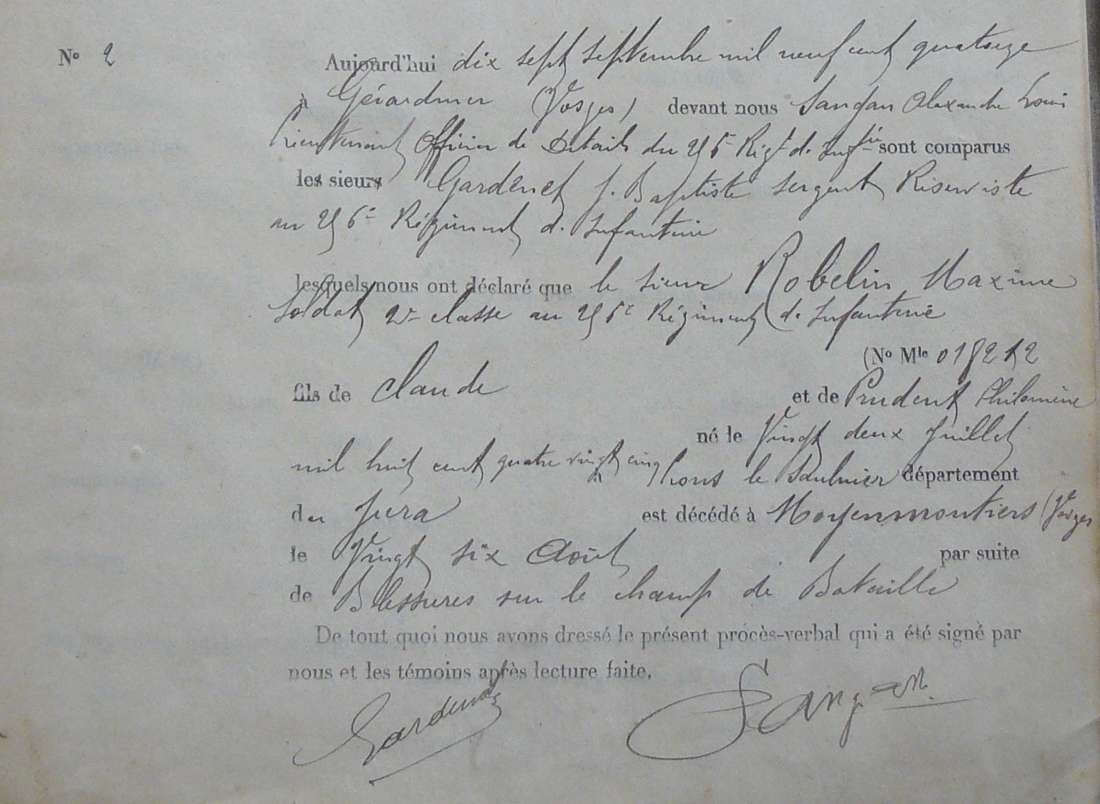 N° 2
Aujourd'hui dix sept septembre mil neuf cent quatorze
à Gérardmer (Vosges) devant nous Sangan Alexandre Louis
Lieutenant Officier de Détails du 256e Régt d'Inftie sont comparus
les sieurs Gardenet J. Baptiste sergent Réserviste
au 256e Régiment d'Infanterie
lesquels nous ont déclaré que le sieur Robelin Maxime
soldat 2e classe au 256e Régiment d'Infanterie
(N° Mle 018212
fils de Claude et de Prudent Philomène
né le Vingt deux Juillet
mil huit cent quatre vingt cinq Lons le Saulnier département
du Jura est décédé à Moyenmoutiers (Vosges
le Vingt six Août par suite
de Blessures sur le champ de Bataille
De tout quoi nous avons dressé le présent procès-verbal qui a été signé par
nous et les témoins après lecture faite.
Gardenet Sangan